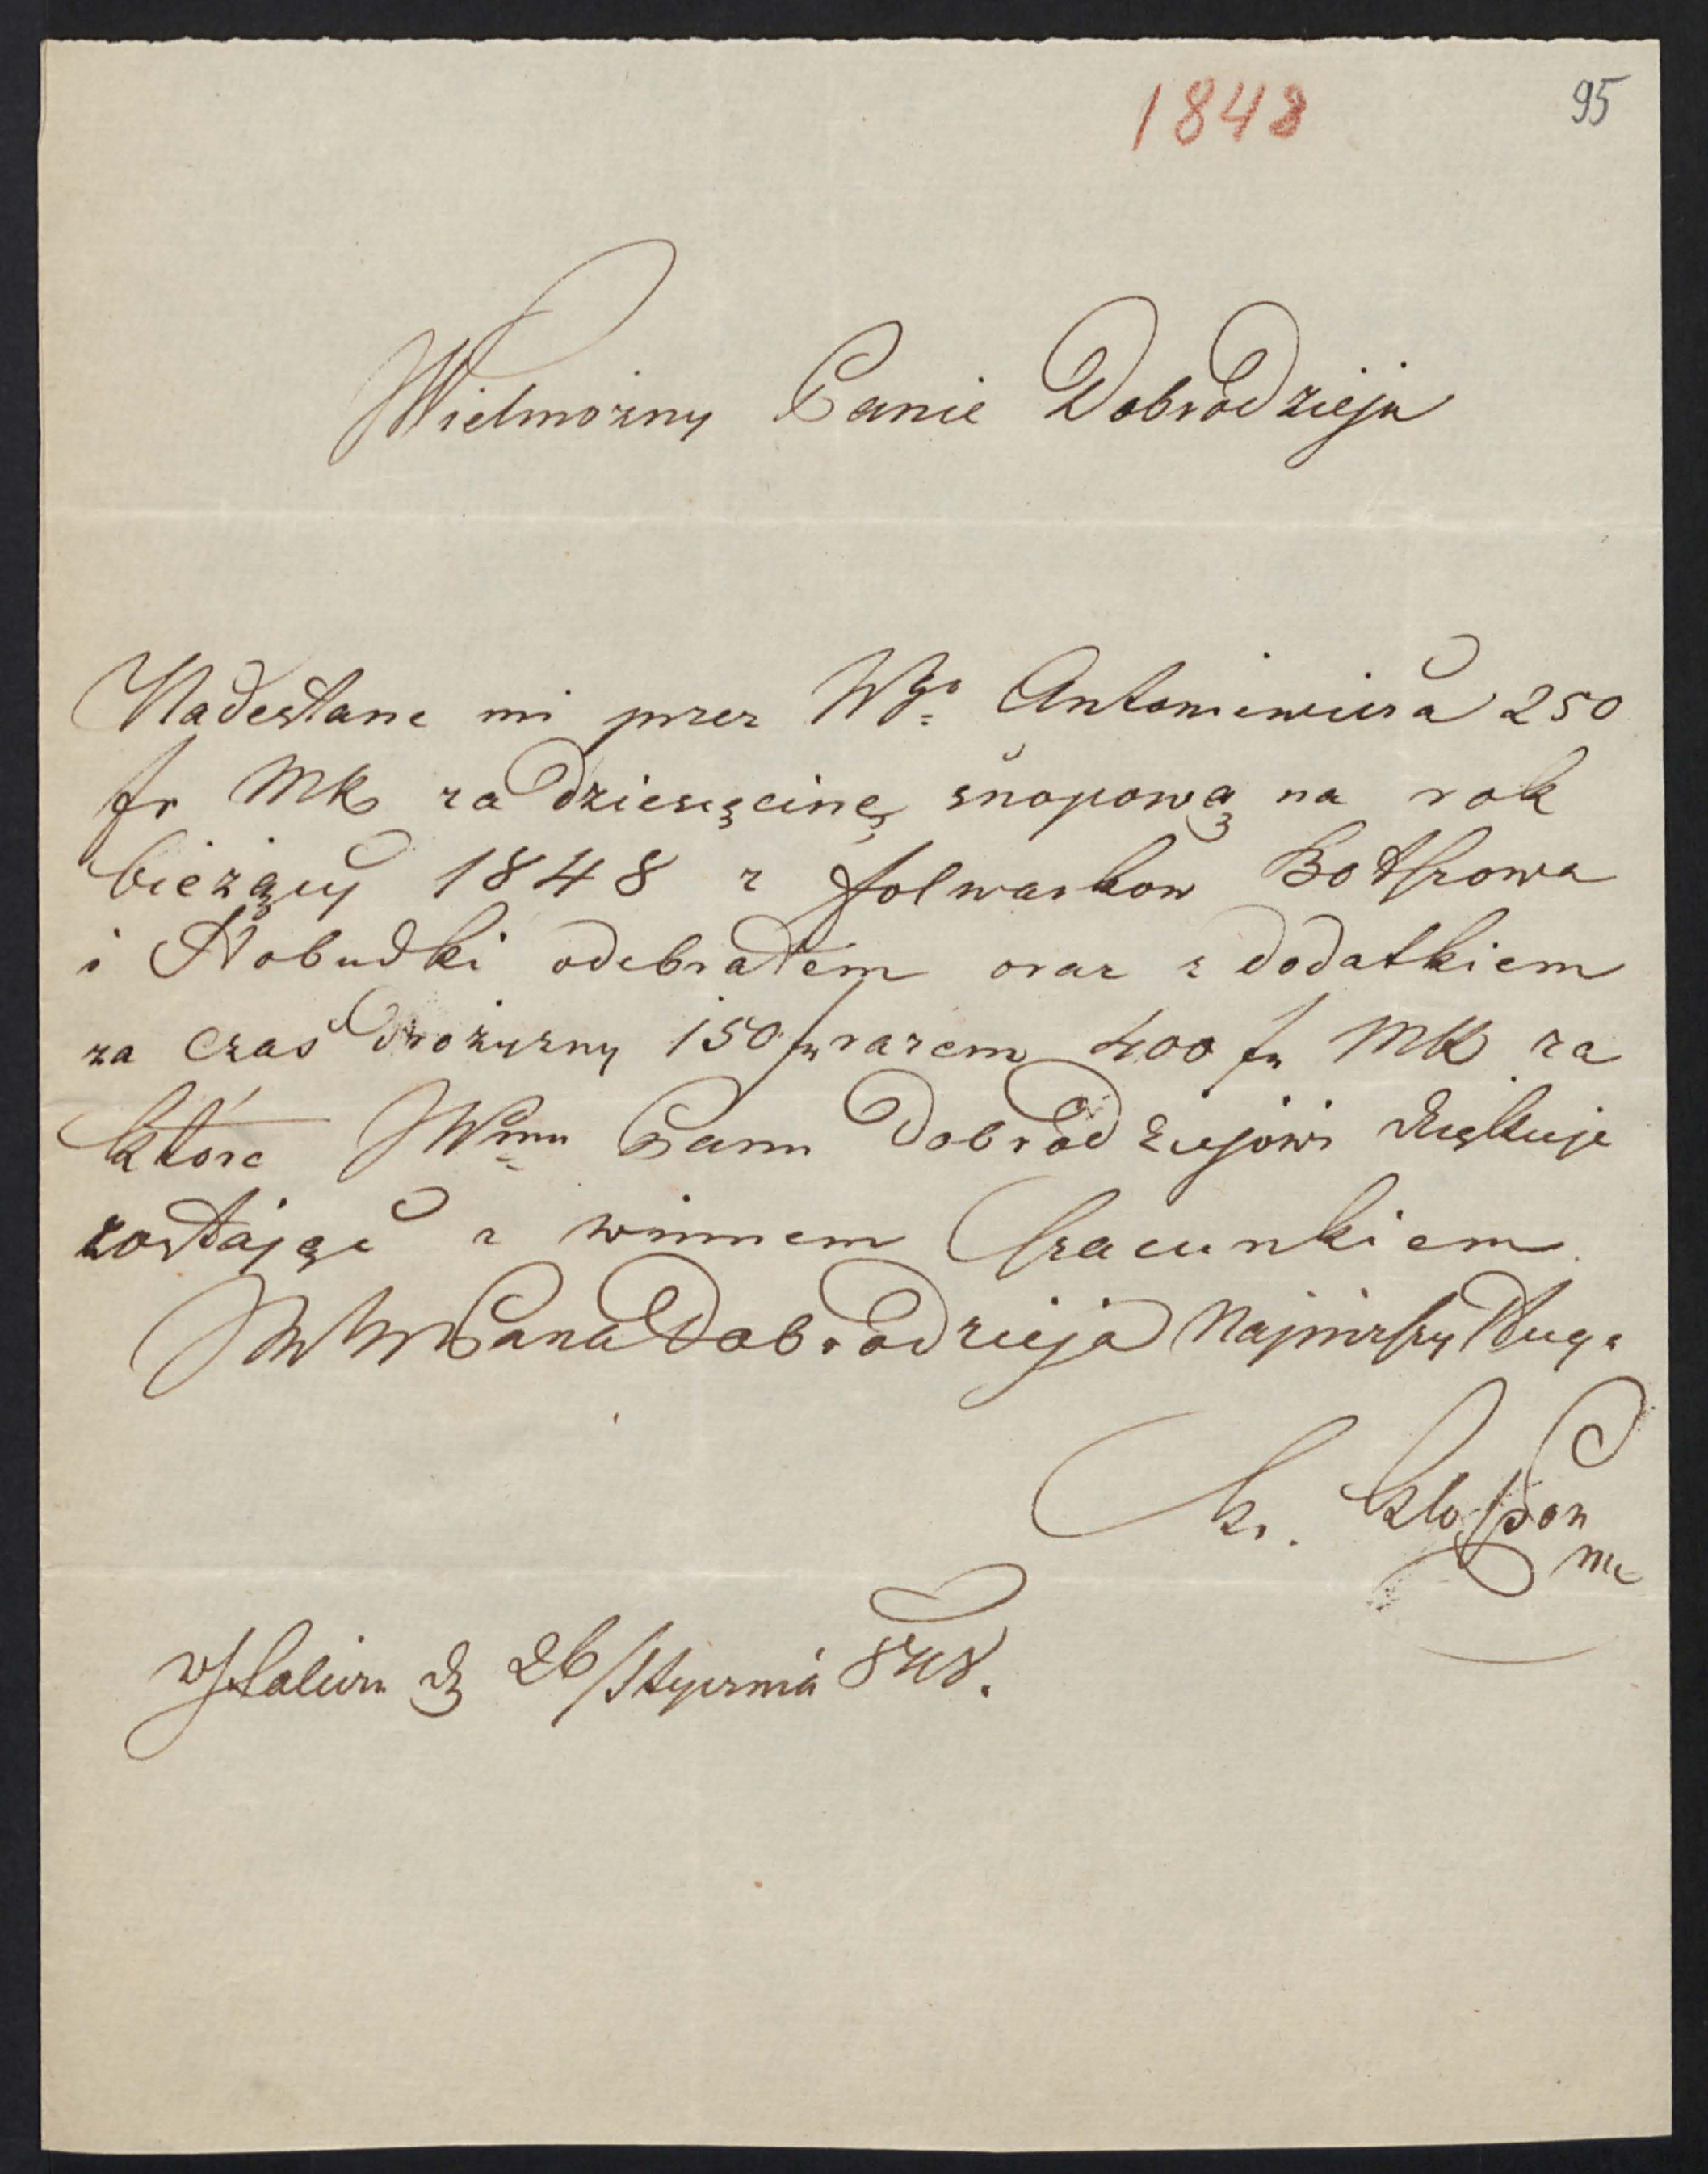 1848
95
Wielmożny Panie Dobrodzieju
Nadesłane mi przez Wgo Antoniewicza 250
fr MK za dziesięcinę snopową na rok
bieżący 1848 z folwarkow
i odebrałem oraz z dodatkiem
za czas drożyzny 150 fr razem 400 fr MK za
które Wmu Panu Dobrodziejowi dziękuje
zostając z winnem szacunkiem
Pana Dobrodzieja Najniższy Sługa
26/Stycznia 848.